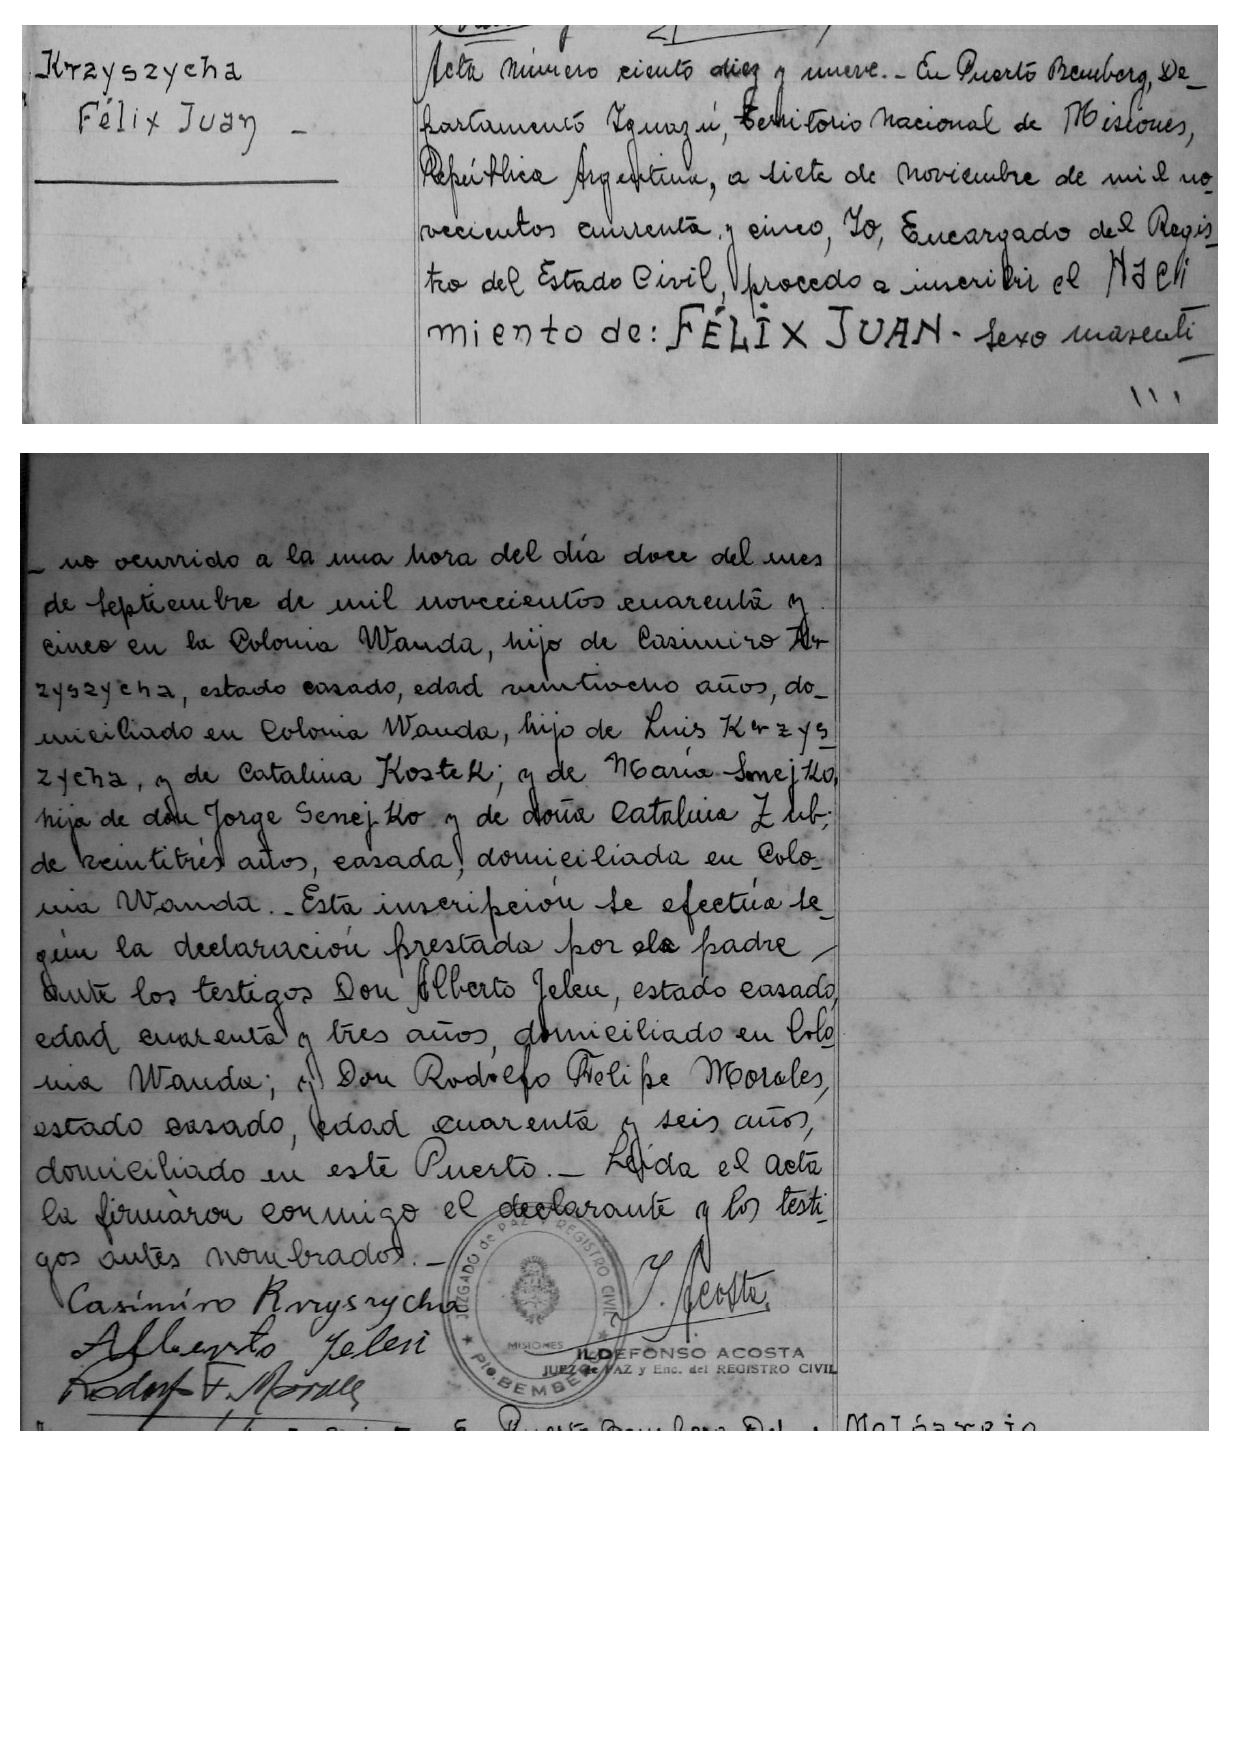 Krzyszycha
Félix Juan -
Acta Número ciento diez y nueve.- En Puerto Bemberg, De_
partamento Iguazú, Territorio Nacional de Misiones,
República Argentina, a siete de Noviembre de mil no_
vecientos cuarenta y cinco, Yo, Encargado del Regis_
tro del Estado Civil, procedo a inscribir el Naci
miento de: FÉLIX JUAN - sexo masculi_
_ no ocurrido a la una hora del día doce del mes
de septiembre de mil novecientos cuarenta y
cinco en la Colonia Wanda, hijo de Casimiro Kr
zyszycha, estado casado, edad veintiocho años, do_
miciliado en Colonia Wanda, hijo de Luis Krzys_
zycha, y de Catalina Kostek; y de María Senejko,
hija de don Jorge Senejko y de doña Catalina Zub;
de veintitrés años, casada, domiciliada en Colo_
nia Wanda._ Esta inscripción se efectúa se_
gún la declaración prestada por el padre
ante los testigos Don Alberto Jelen, estado casado,
edad cuarenta y tres años, domiciliado en Colo
nia Wanda; y Don Rodolfo Felipe Morales,
estado casado, edad cuarenta y seis años,
domiciliado en este Puerto._ Leída el acta
la firmaron conmigo el declarante y los testi_
gos antes nombrados._
Casimiro Krzyszycha
J. Acosta
Alberto Jelen
Rodolfo F. Morales
JUZGADO de PAZ y REGISTRO CIVIL
MISIONES
Pto. BEMBERG
ILDEFONSO ACOSTA
JUEZ de PAZ y Enc. del REGISTRO CIVIL
Puerto Bemberg